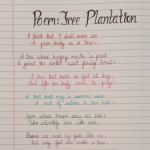 Poem: Tree Plantation
I think that I shall never see
A poem lovely as a tree.
A tree whose hungry mouth is prest
Against the earth's sweet flowing breast;
A tree that looks at God all day,
And lifts her leafy arms to pray;
A tree that may in summer wear
A nest of robins in her hair;
Upon whose bosom snow has lain;
Who intimately lives with rain.
Poems are made by fools like me,
But only God can make a tree.